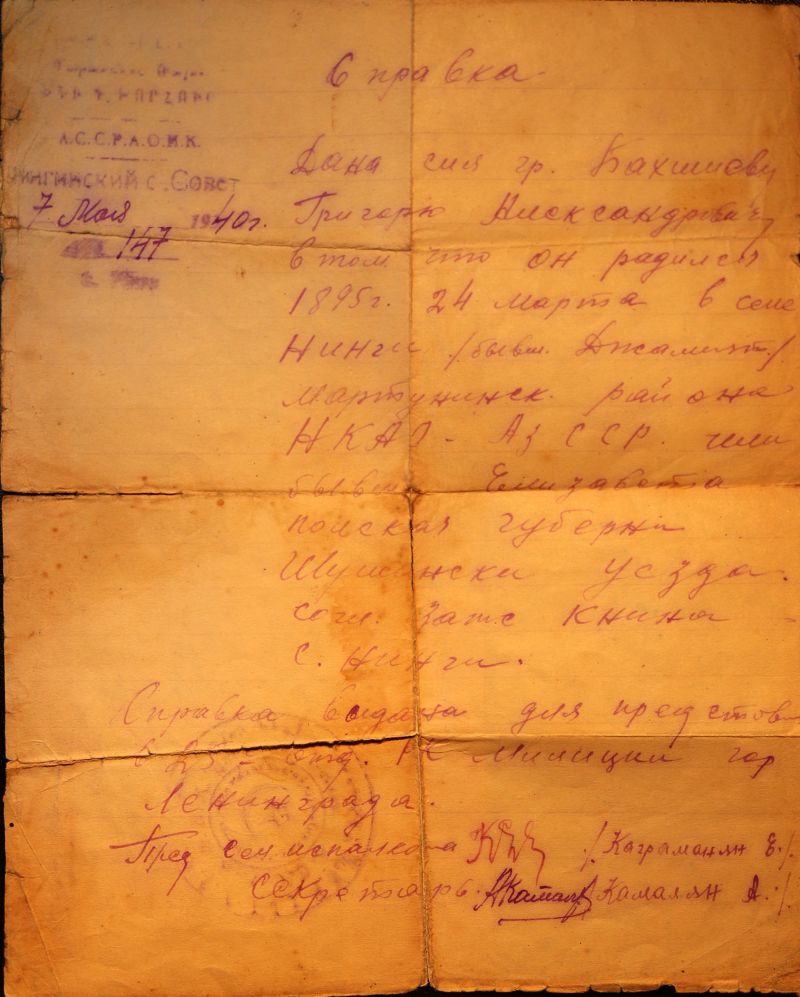 Справка
А.С.С.Р.А.О.Н.К.
Нингийский с. Совет
7 Мая 1940г.
147
Дана сия гр. Бахшиеву
Григорю Александрович
в том что он радился
1895г. 24 марта в селе
Нинги /бывш. Джамият/
Мартунинск. района
НКАО - АзССР. или
бывш Елизавета
полская губерни
Шушински уезда.
согл. загс книга
с. Нинги.
Справка выдана для предстов
в 25 - отд. РК Милиции гор
Ленинграда.
Пред сел исполкома /Каграманян Е./
Секретарь. /Камалян А./